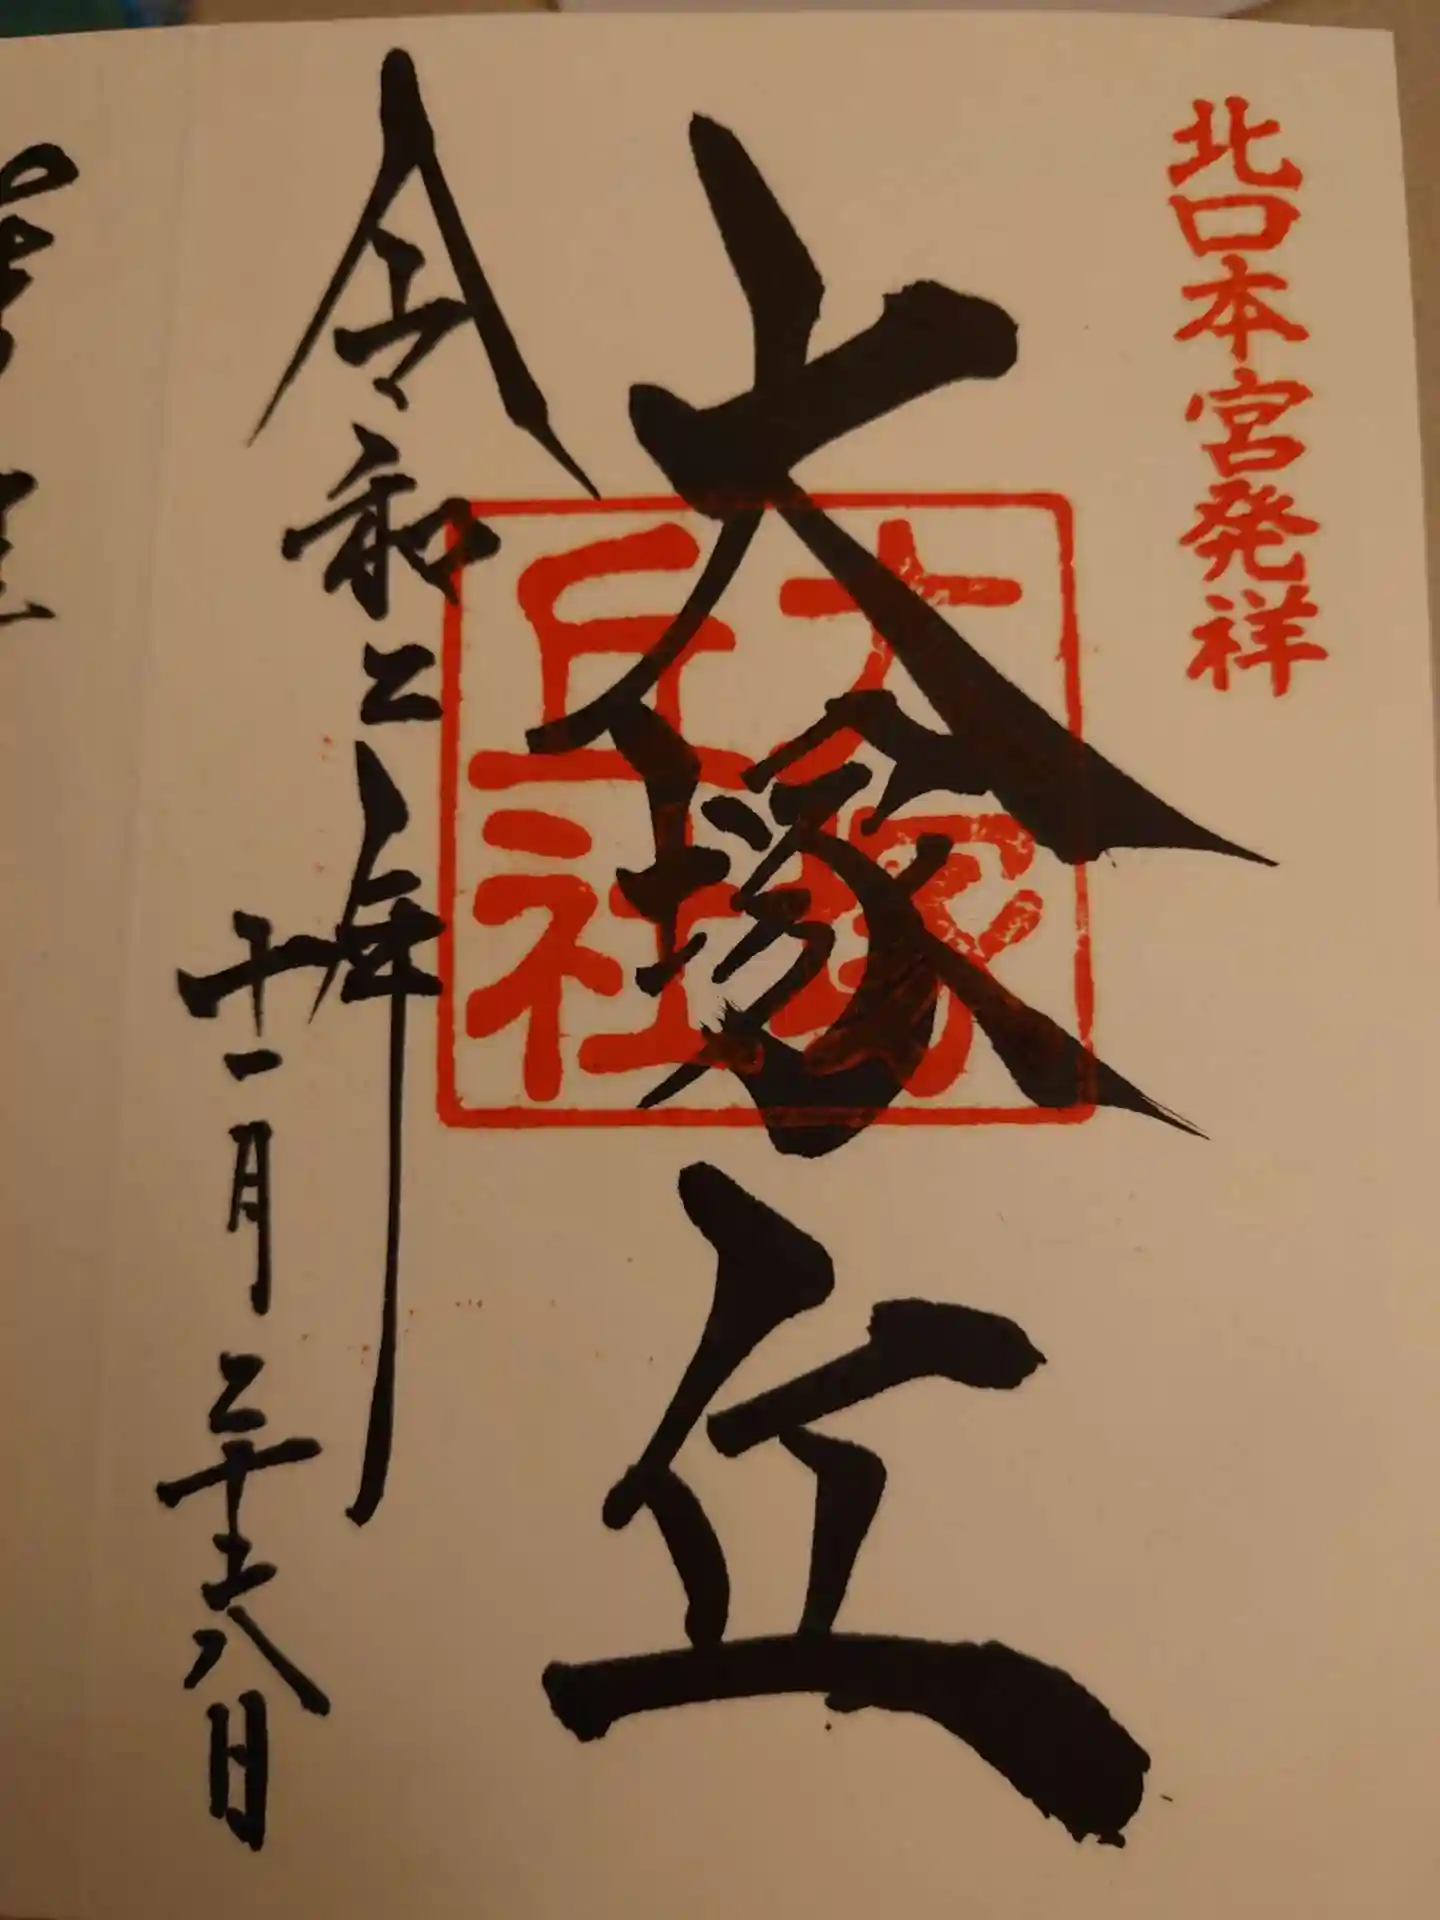 北口本宮発祥
大塚丘
大塚
丘社
令和二年
十一月二十六日